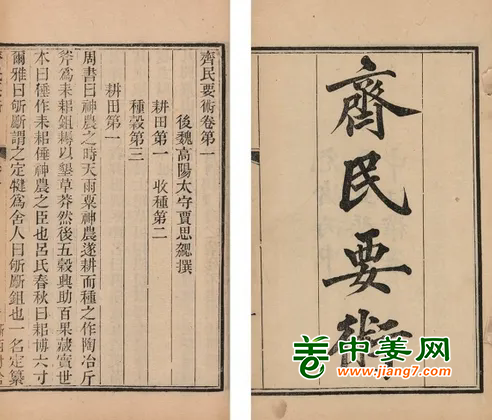 齊民要術
齊民要術卷第一
後魏高陽太守賈思勰撰
耕田第一 收種第二
種穀第三
耕田第一
周書曰神農之時天雨粟神農遂耕而種之作陶冶斤
斧爲耒耜鉏耨以墾草莽然後五穀興助百果藏實世
本曰倕作耒耜倕神農之臣也呂氏春秋曰耜博六寸
爾雅曰斪斸謂之定犍爲舍人曰斪斸鉏也一名定纂
中姜网
www.jiang7.com